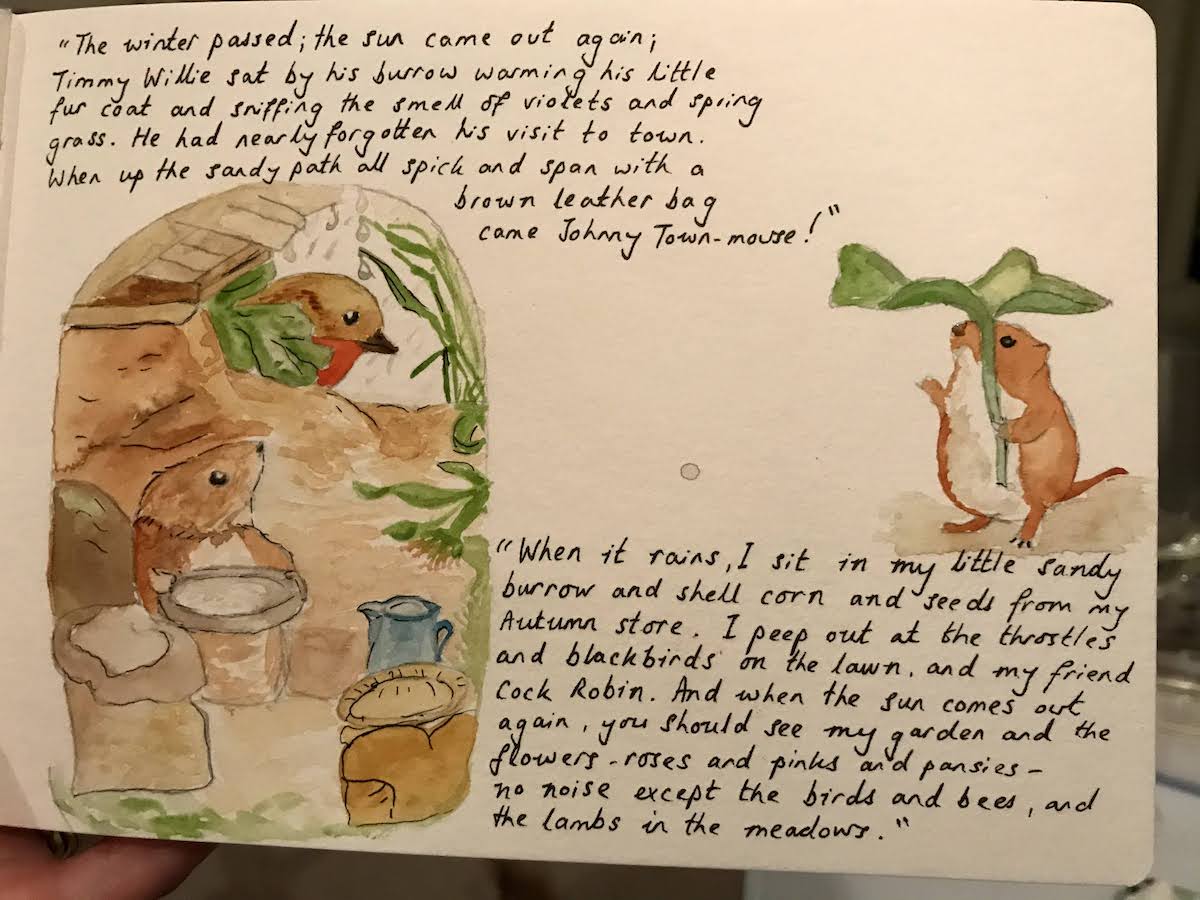 "The winter passed; the sun came out again;
Timmy Willie sat by his burrow warming his little
fur coat and sniffing the smell of violets and spring
grass. He had nearly forgotten his visit to town.
When up the sandy path all spick and span with a
brown leather bag
came Johnny Town-mouse!"
"When it rains, I sit in my little sandy
burrow and shell corn and seeds from my
Autumn store. I peep out at the throstles
and blackbirds on the lawn, and my friend
Cock Robin. And when the sun comes out
again, you should see my garden and the
flowers - roses and pinks and pansies -
no noise except the birds and bees, and
the lambs in the meadows."